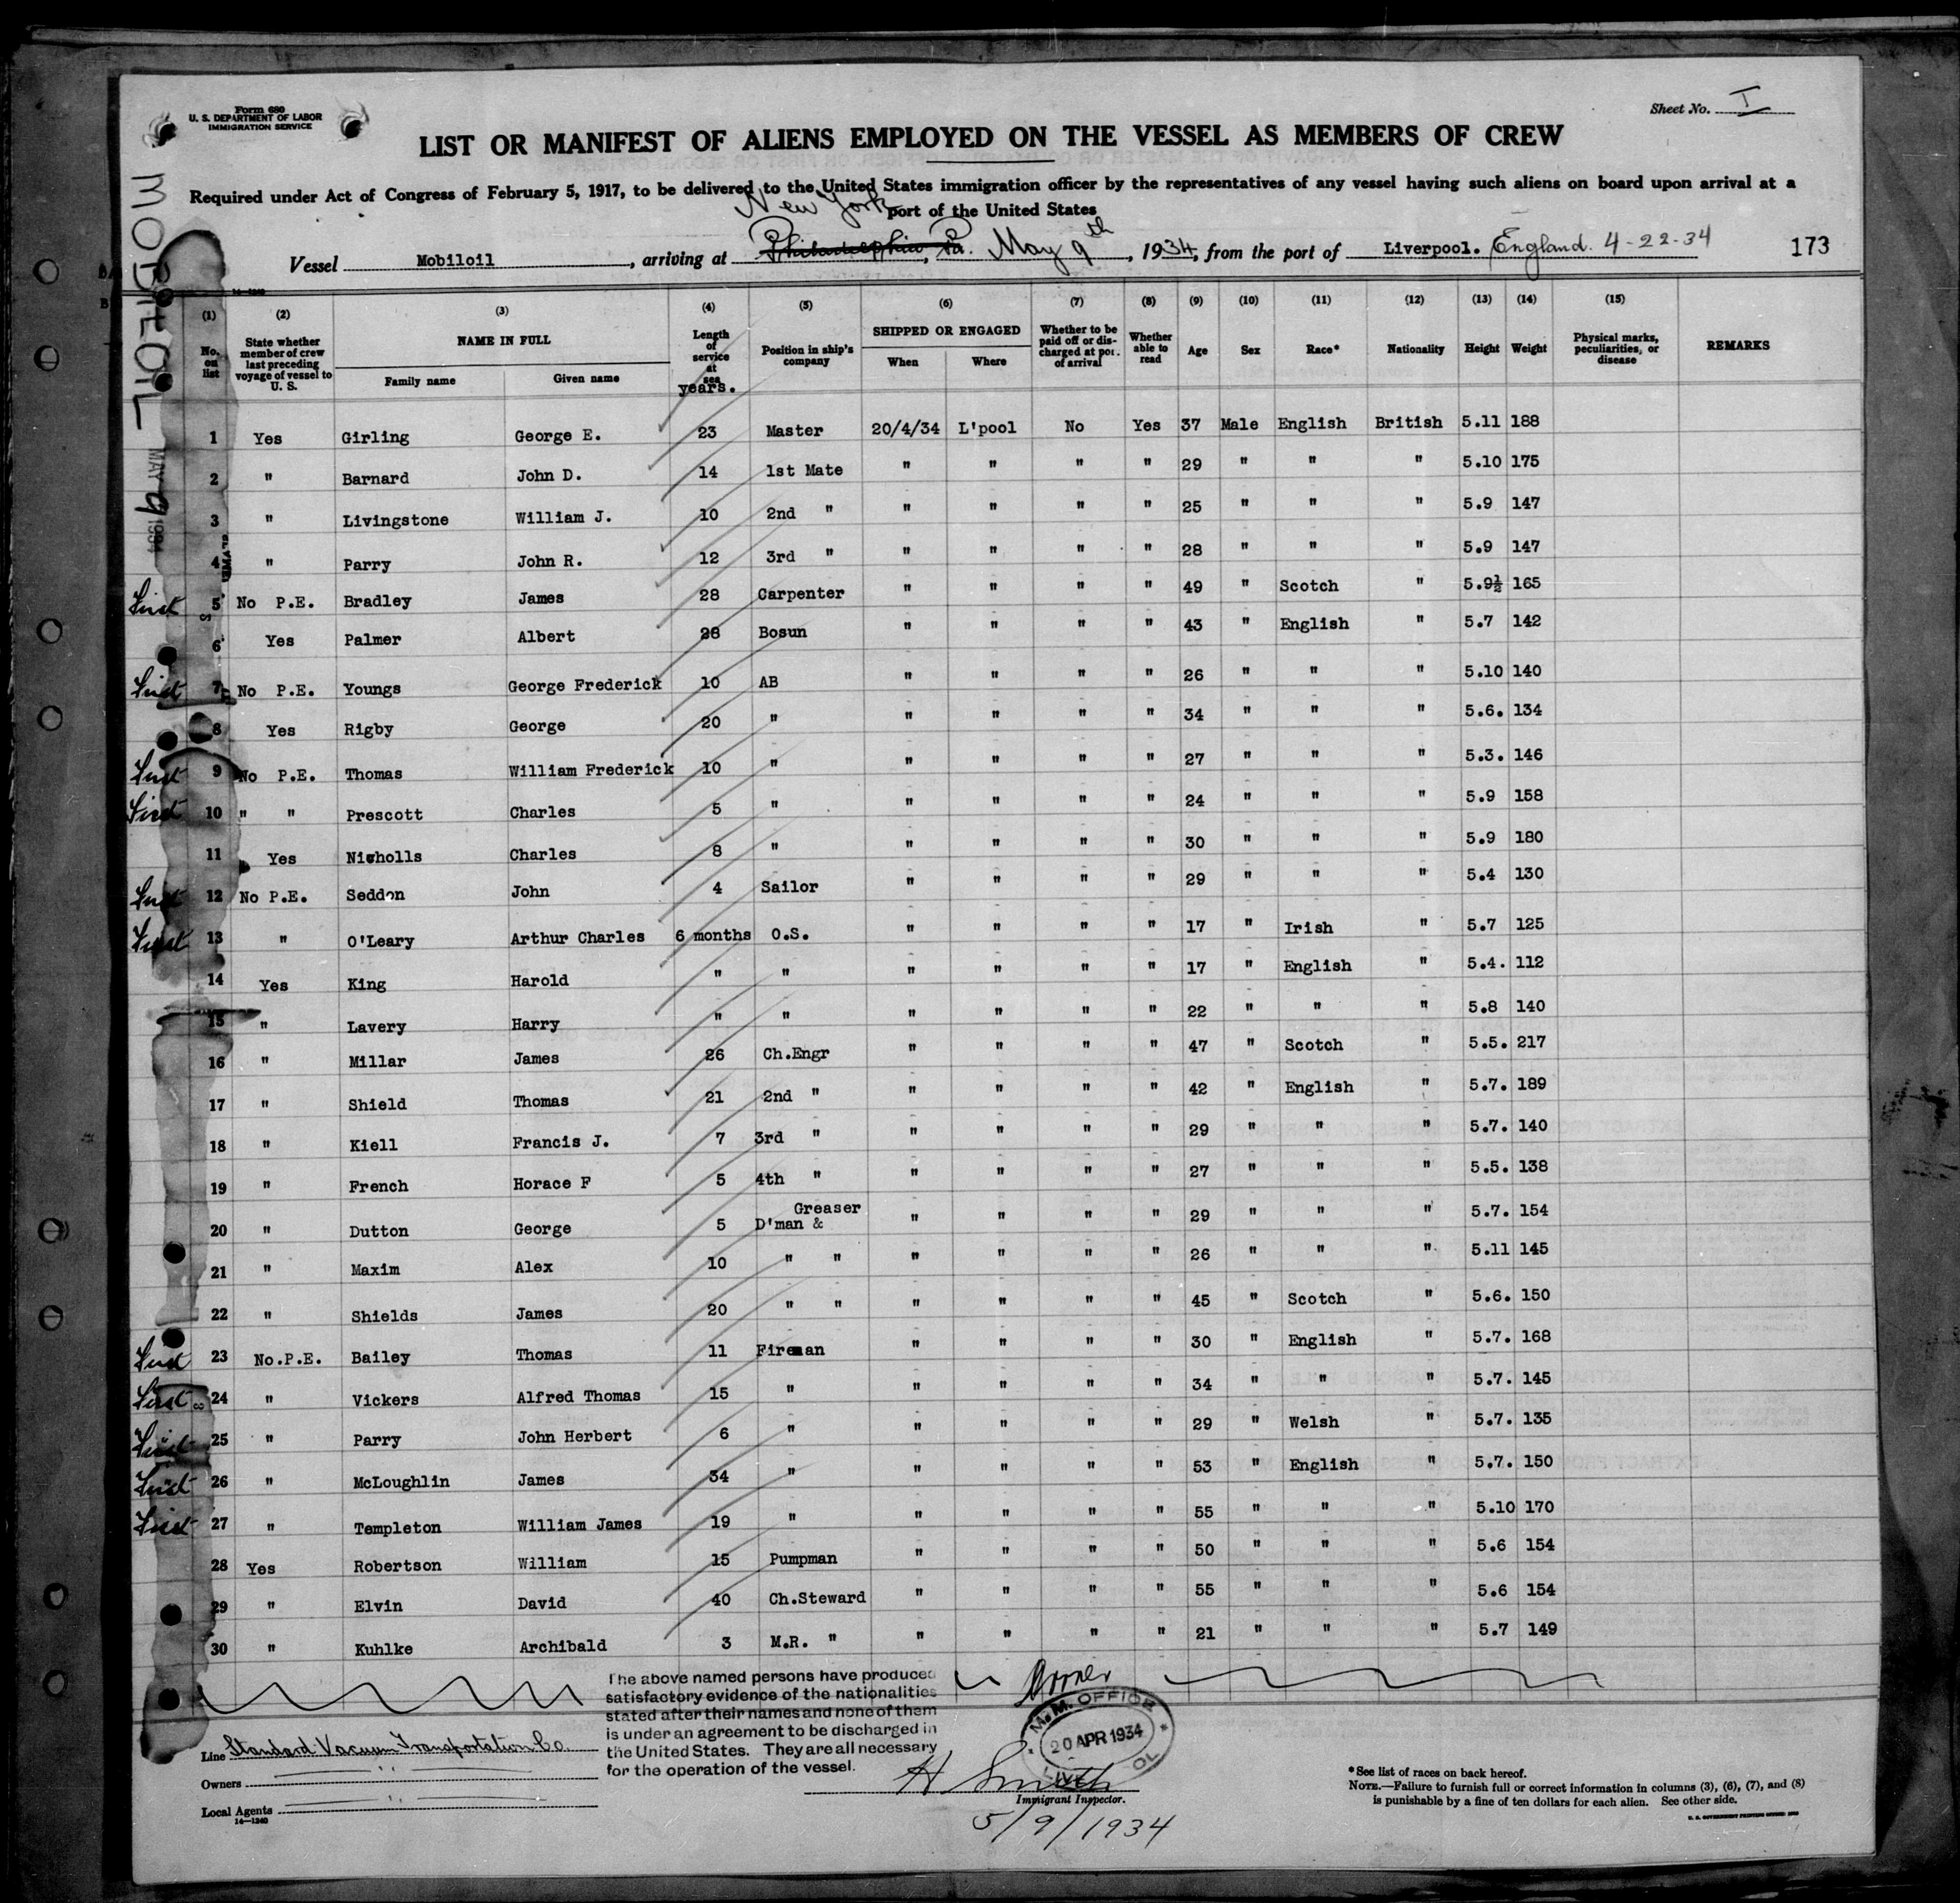 Form 680
U. S. DEPARTMENT OF LABOR
IMMIGRATION SERVICE
Sheet No. I
LIST OR MANIFEST OF ALIENS EMPLOYED ON THE VESSEL AS MEMBERS OF CREW
Required under Act of Congress of February 5, 1917, to be delivered to the United States immigration officer by the representatives of any vessel having such aliens on board upon arrival at a
port of the United States
New York
Vessel Mobiloil, arriving at Philadelphia, Pa. May 9th, 1934, from the port of Liverpool. England. 4-22-34 173
MOBILOIL MAY 9 1934
(1) (2) (3) (4) (5) (6) (7) (8) (9) (10) (11) (12) (13) (14) (15)
No. on list | State whether member of crew last preceding voyage of vessel to U. S. | NAME IN FULL Family name Given name | Length of service at sea years. | Position in ship's company | SHIPPED OR ENGAGED When Where | Whether to be paid off or discharged at port of arrival | Whether able to read | Age | Sex | Race* | Nationality | Height | Weight | Physical marks, peculiarities, or disease | REMARKS
1 Yes Girling George E. 23 Master 20/4/34 L'pool No Yes 37 Male English British 5.11 188
2 " Barnard John D. 14 1st Mate " " " " 29 " " " 5.10 175
3 " Livingstone William J. 10 2nd " " " " " 25 " " " 5.9 147
4 " Parry John R. 12 3rd " " " " " 28 " " " 5.9 147
First 5 No P.E. Bradley James 28 Carpenter " " " " 49 " Scotch " 5.9½ 165
6 Yes Palmer Albert 28 Bosun " " " " 43 " English " 5.7 142
First 7 No P.E. Youngs George Frederick 10 AB " " " " 26 " " " 5.10 140
8 Yes Rigby George 20 " " " " " 34 " " " 5.6. 134
First 9 No P.E. Thomas William Frederick 10 " " " " " 27 " " " 5.3. 146
First 10 " " Prescott Charles 5 " " " " " 24 " " " 5.9 158
11 Yes Nicholls Charles 8 " " " " " 30 " " " 5.9 180
First 12 No P.E. Seddon John 4 Sailor " " " " 29 " " " 5.4 130
First 13 " O'Leary Arthur Charles 6 months O.S. " " " " 17 " Irish " 5.7 125
14 Yes King Harold " " " " " " 17 " English " 5.4. 112
15 " Lavery Harry " " " " " " 22 " " " 5.8 140
16 " Millar James 26 Ch.Engr " " " " 47 " Scotch " 5.5. 217
17 " Shield Thomas 21 2nd " " " " " 42 " English " 5.7. 189
18 " Kiell Francis J. 7 3rd " " " " " 29 " " " 5.7. 140
19 " French Horace F 5 4th " " " " " 27 " " " 5.5. 138
20 " Dutton George 5 D'man & Greaser " " " " 29 " " " 5.7. 154
21 " Maxim Alex 10 " " " " " " 26 " " " 5.11 145
22 " Shields James 20 " " " " " " 45 " Scotch " 5.6. 150
First 23 No.P.E. Bailey Thomas 11 Fireman " " " " 30 " English " 5.7. 168
First 24 " Vickers Alfred Thomas 15 " " " " " 34 " " " 5.7. 145
First 25 " Parry John Herbert 6 " " " " " 29 " Welsh " 5.7. 135
First 26 " McLoughlin James 34 " " " " " 53 " English " 5.7. 150
First 27 " Templeton William James 19 " " " " " 55 " " " 5.10 170
28 Yes Robertson William 15 Pumpman " " " " 50 " " " 5.6 154
29 " Elvin David 40 Ch.Steward " " " " 55 " " " 5.6 154
30 " Kuhlke Archibald 3 M.R. " " " " " 21 " " " 5.7 149
The above named persons have produced
satisfactory evidence of the nationalities
stated after their names and none of them
is under an agreement to be discharged in
the United States. They are all necessary
for the operation of the vessel.
M.M. OFFICE
20 APR 1934
Line Standard Vacuum Transportation Co.
Owners " "
Local Agents " "
14—1240
H Smith
Immigrant Inspector.
5/9/1934
*See list of races on back hereof.
NOTE.—Failure to furnish full or correct information in columns (3), (6), (7), and (8)
is punishable by a fine of ten dollars for each alien. See other side.